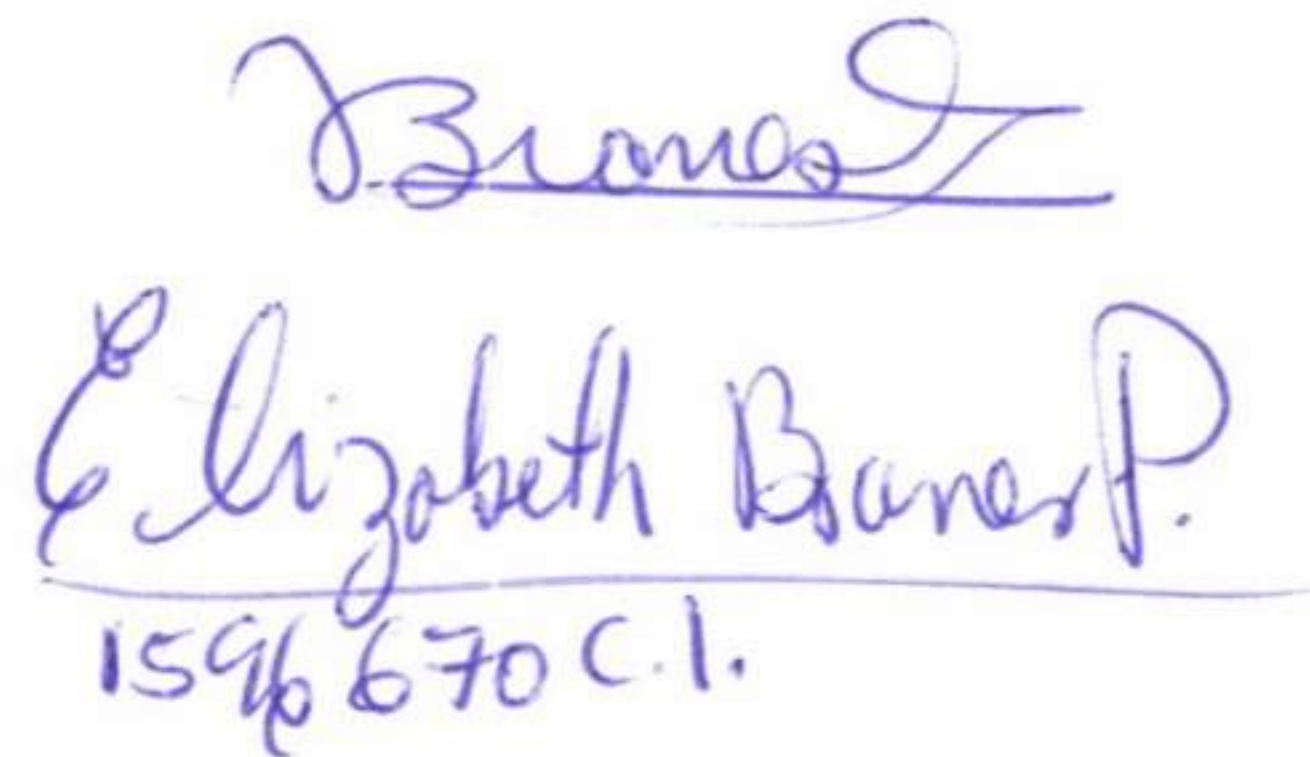 Briones
Elizabeth Briones P.
1596670 C.I.